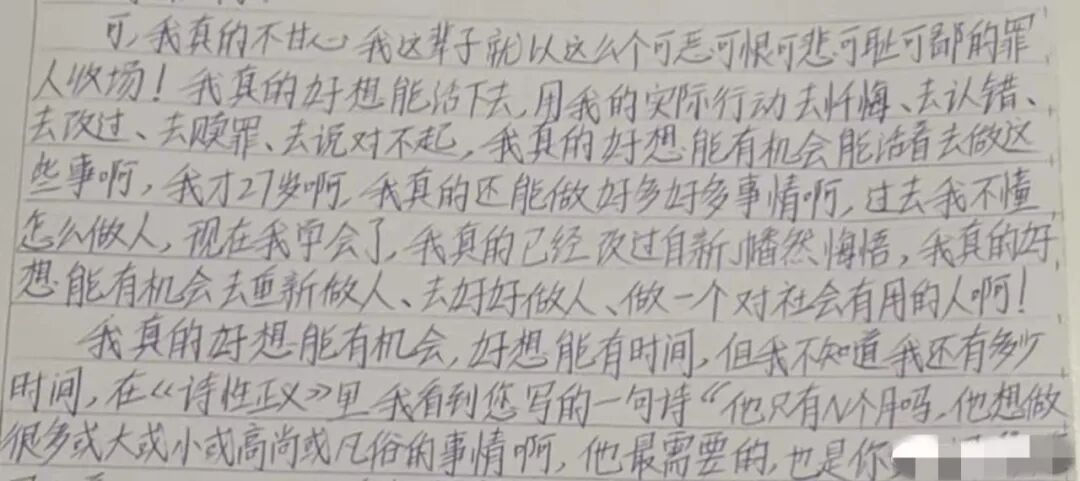 可，我真的不甘心我这辈子就以这么个可恶可恨可悲可耻可鄙的罪
人收场！我真的好想能活下去，用我的实际行动去忏悔、去认错、
去改过、去赎罪、去说对不起，我真的好想能有机会能活着去做这
些事啊，我才27岁啊，我真的还能做好多好多事情啊，过去我不懂
怎么做人，现在我学会了，我真的已经改过自新、幡然悔悟，我真的好
想能有机会去重新做人、去好好做人、做一个对社会有用的人啊！
我真的好想能有机会，好想能有时间，但我不知道我还有多少
时间，在《诗性正义》里我看到您写的一句诗“他只有N个月吗，他想做
很多或大或小或高尚或凡俗的事情啊，他最需要的，也是你